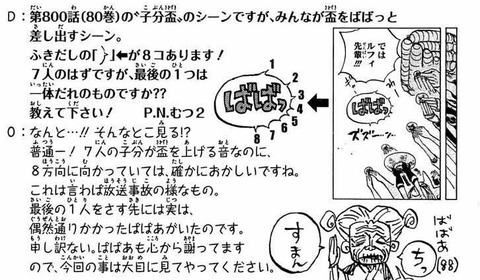 D：第800話(80巻)の〝子分盃〟のシーンですが、みんなが盃をばばっと
差し出すシーン。
ふきだしの「}」⬅が８コあります！
７人のはずですが、最後の１つは
一体だれのものですか??
教えて下さい！ P.N.むつ２
O：なんと…!! そんなとこ見る!?
普通ー！７人の子分が盃を上げる音なのに、
８方向に向かっていては、確かにおかしいですね。
これは言わば放送事故の様なもの。
最後の１人をさす先には実は、
偶然通りかかったばばあがいたのです。
申し訳ない。ばばあも心から謝ってます
ので、今回の事は大目に見てやってください。
1
2
3
4
5
6
7
8
ばばっ
⬅
では
ルフィ
先輩!!
ばばっ
ズズーン…
すまん
ち
ばばあ
(88)